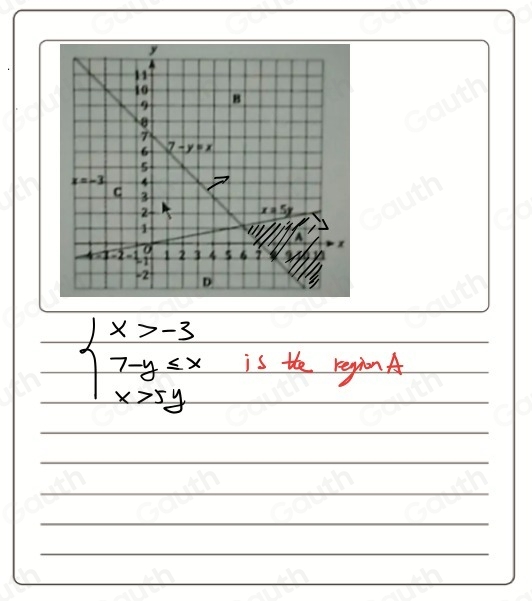 y
11
10
9
8
7
6
5
4
3
2
1
B
7-y=x
x=-3
C
x=5y
A
x
-4 -3 -2 -1 0 1 2 3 4 5 6 7 8 9 10 11
-1
-2
D
x>-3
7-y≤x is the region A
x>5y
Gauth